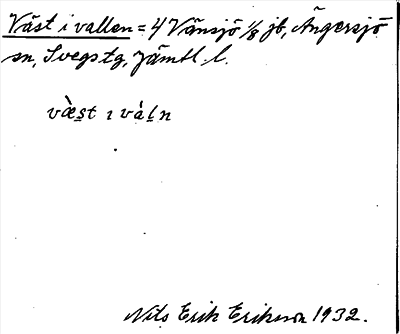 Väst i vallen = 4 Vänsjö 1/8 jb, Ängersjö
sn, Svegs tg, Jämtl. l.
væ̀st ı vàḷn
Nils Erik Erikson 1932.